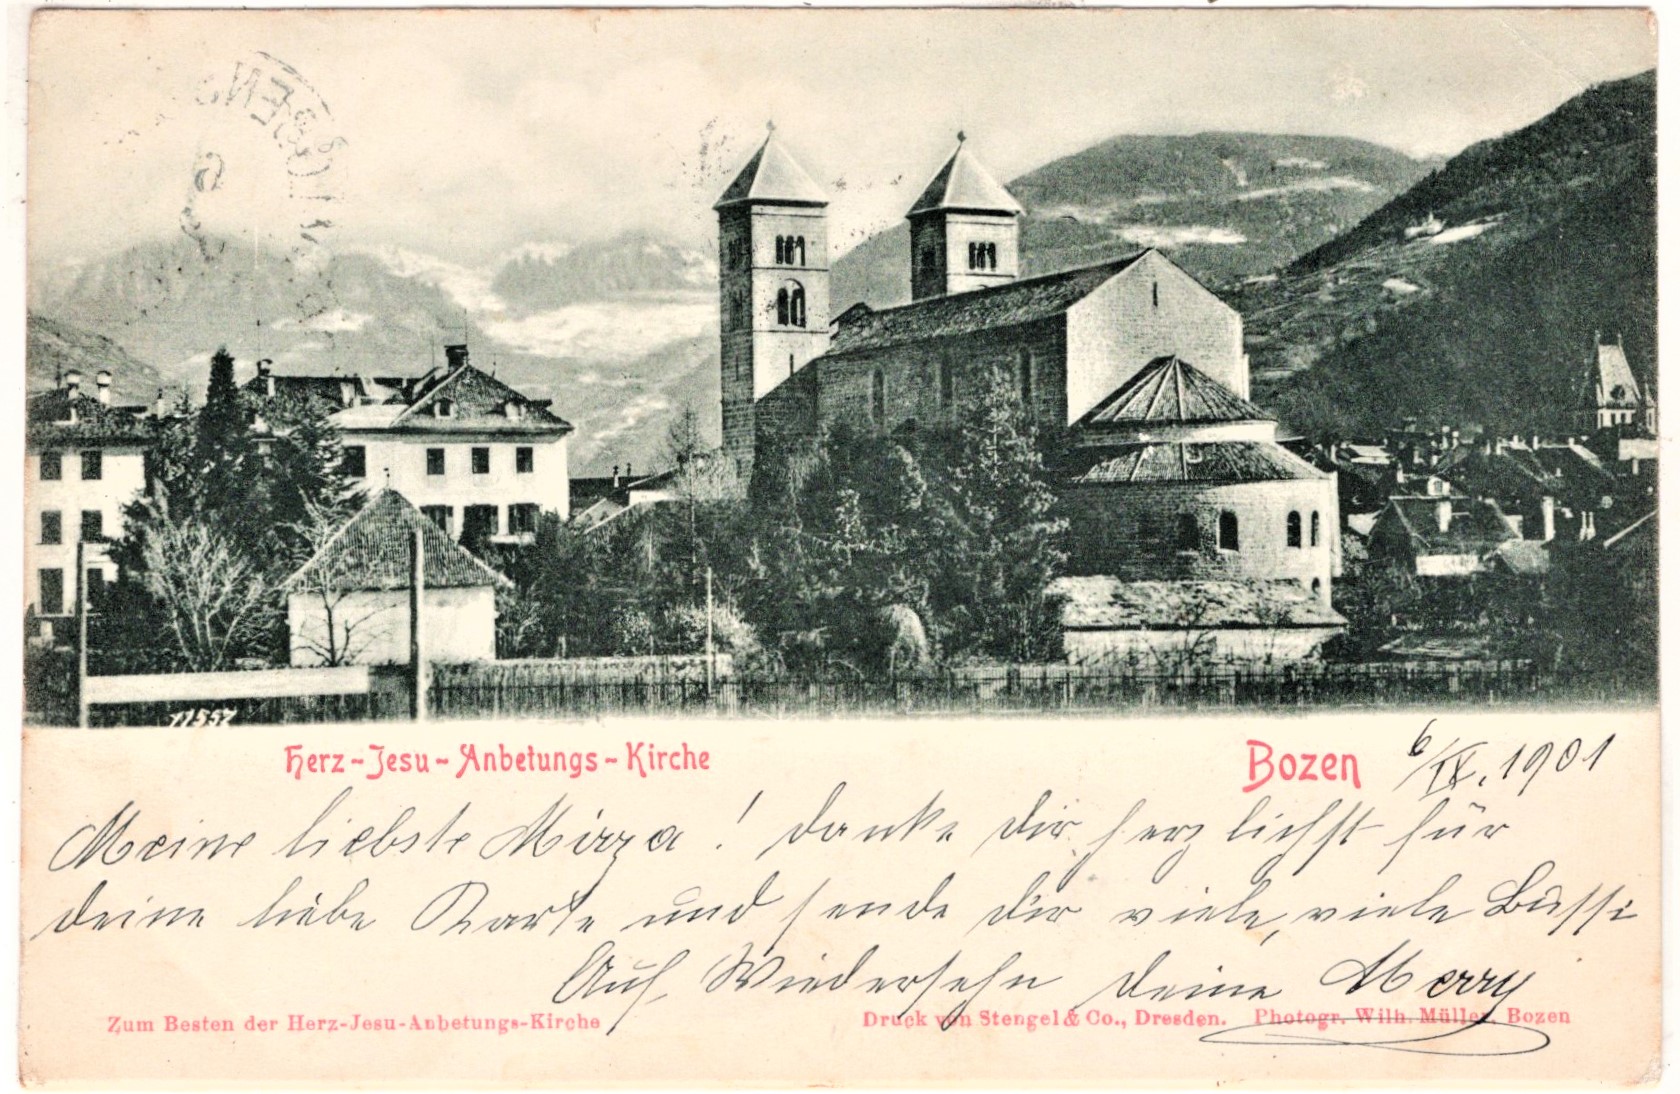 11557
Herz-Jesu-Anbetungs-Kirche
Bozen 6/IX. 1901
Meine liebste Mirza! danke dir herzlichst für
deine liebe Karte und sende dir viele, viele Bussi
Auf Wiedersehn deine Merry
Zum Besten der Herz-Jesu-Anbetungs-Kirche
Druck von Stengel & Co., Dresden. Photogr. Wilh. Müller, Bozen